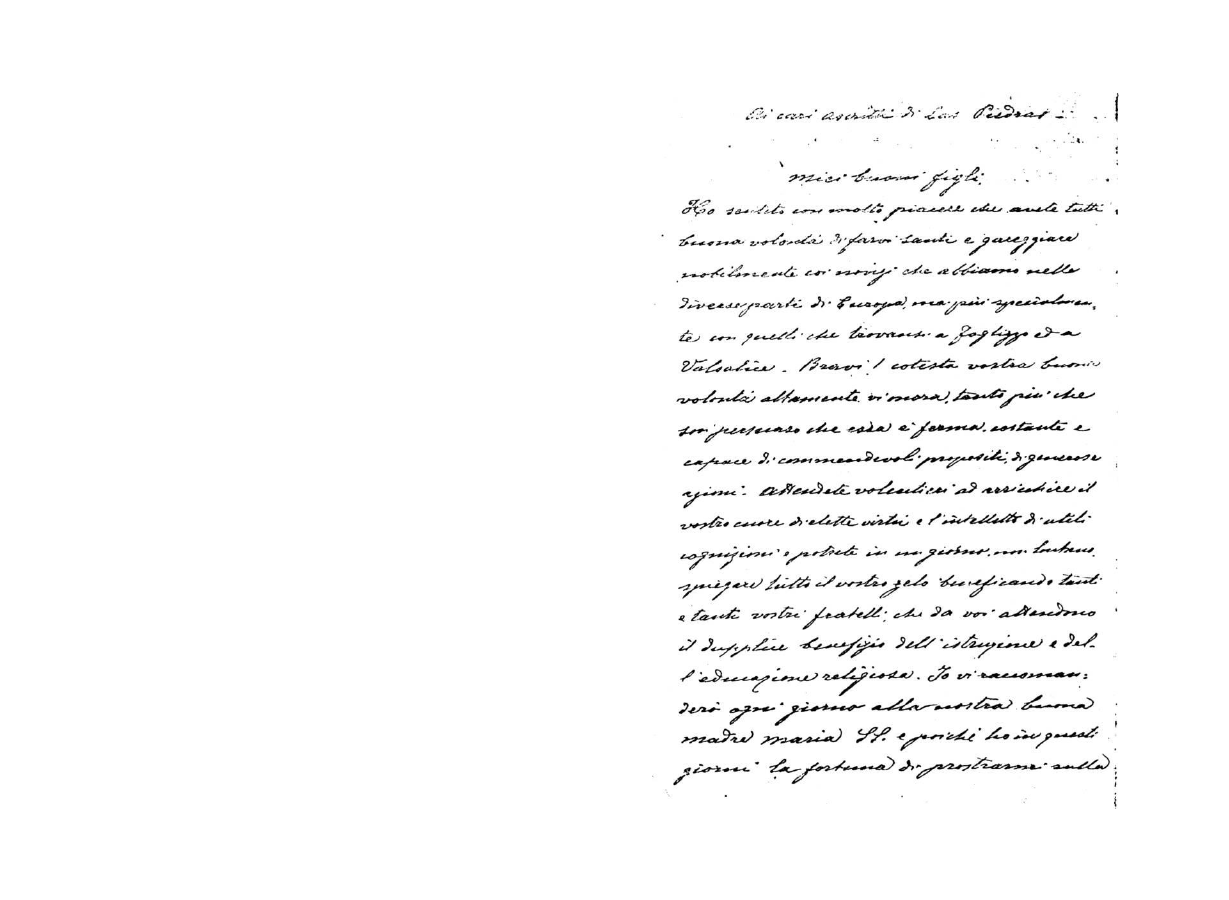 Ai cari ascritti di Las Piedras
Miei buoni figli,
Ho sentito con molto piacere che avete tutti
buona volontà di farvi santi e gareggiare
nobilmente coi novizi che abbiamo nelle
diverse parti di Europa, ma più specialmen-
te con quelli che trovansi a Foglizzo ed a
Valsalice. Bravi! cotesta vostra buona
volontà altamente vi onora, tanto più che
son persuaso che essa è ferma, costante e
capace di commendevoli propositi, di generose
azioni. Attendete volentieri ad arricchire il
vostro cuore di elette virtù e l'intelletto di utili
cognizioni e potrete in un giorno, non lontano,
spiegare tutto il vostro zelo beneficando tanti
e tanti vostri fratelli, che da voi attendono
il duplice benefizio dell'istruzione e del-
l'educazione religiosa. Io vi raccoman-
derò ogni giorno alla nostra buona
madre Maria SS. e poichè ho in questi
giorni la fortuna di prostrarmi sulla